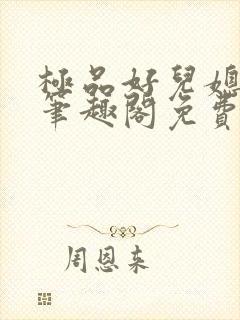 極品好兒媳
筆趣閣免費
周恩来